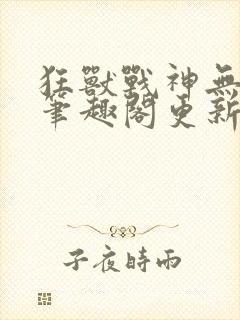 狂獸戰神無
筆趣閣更新
子夜時雨